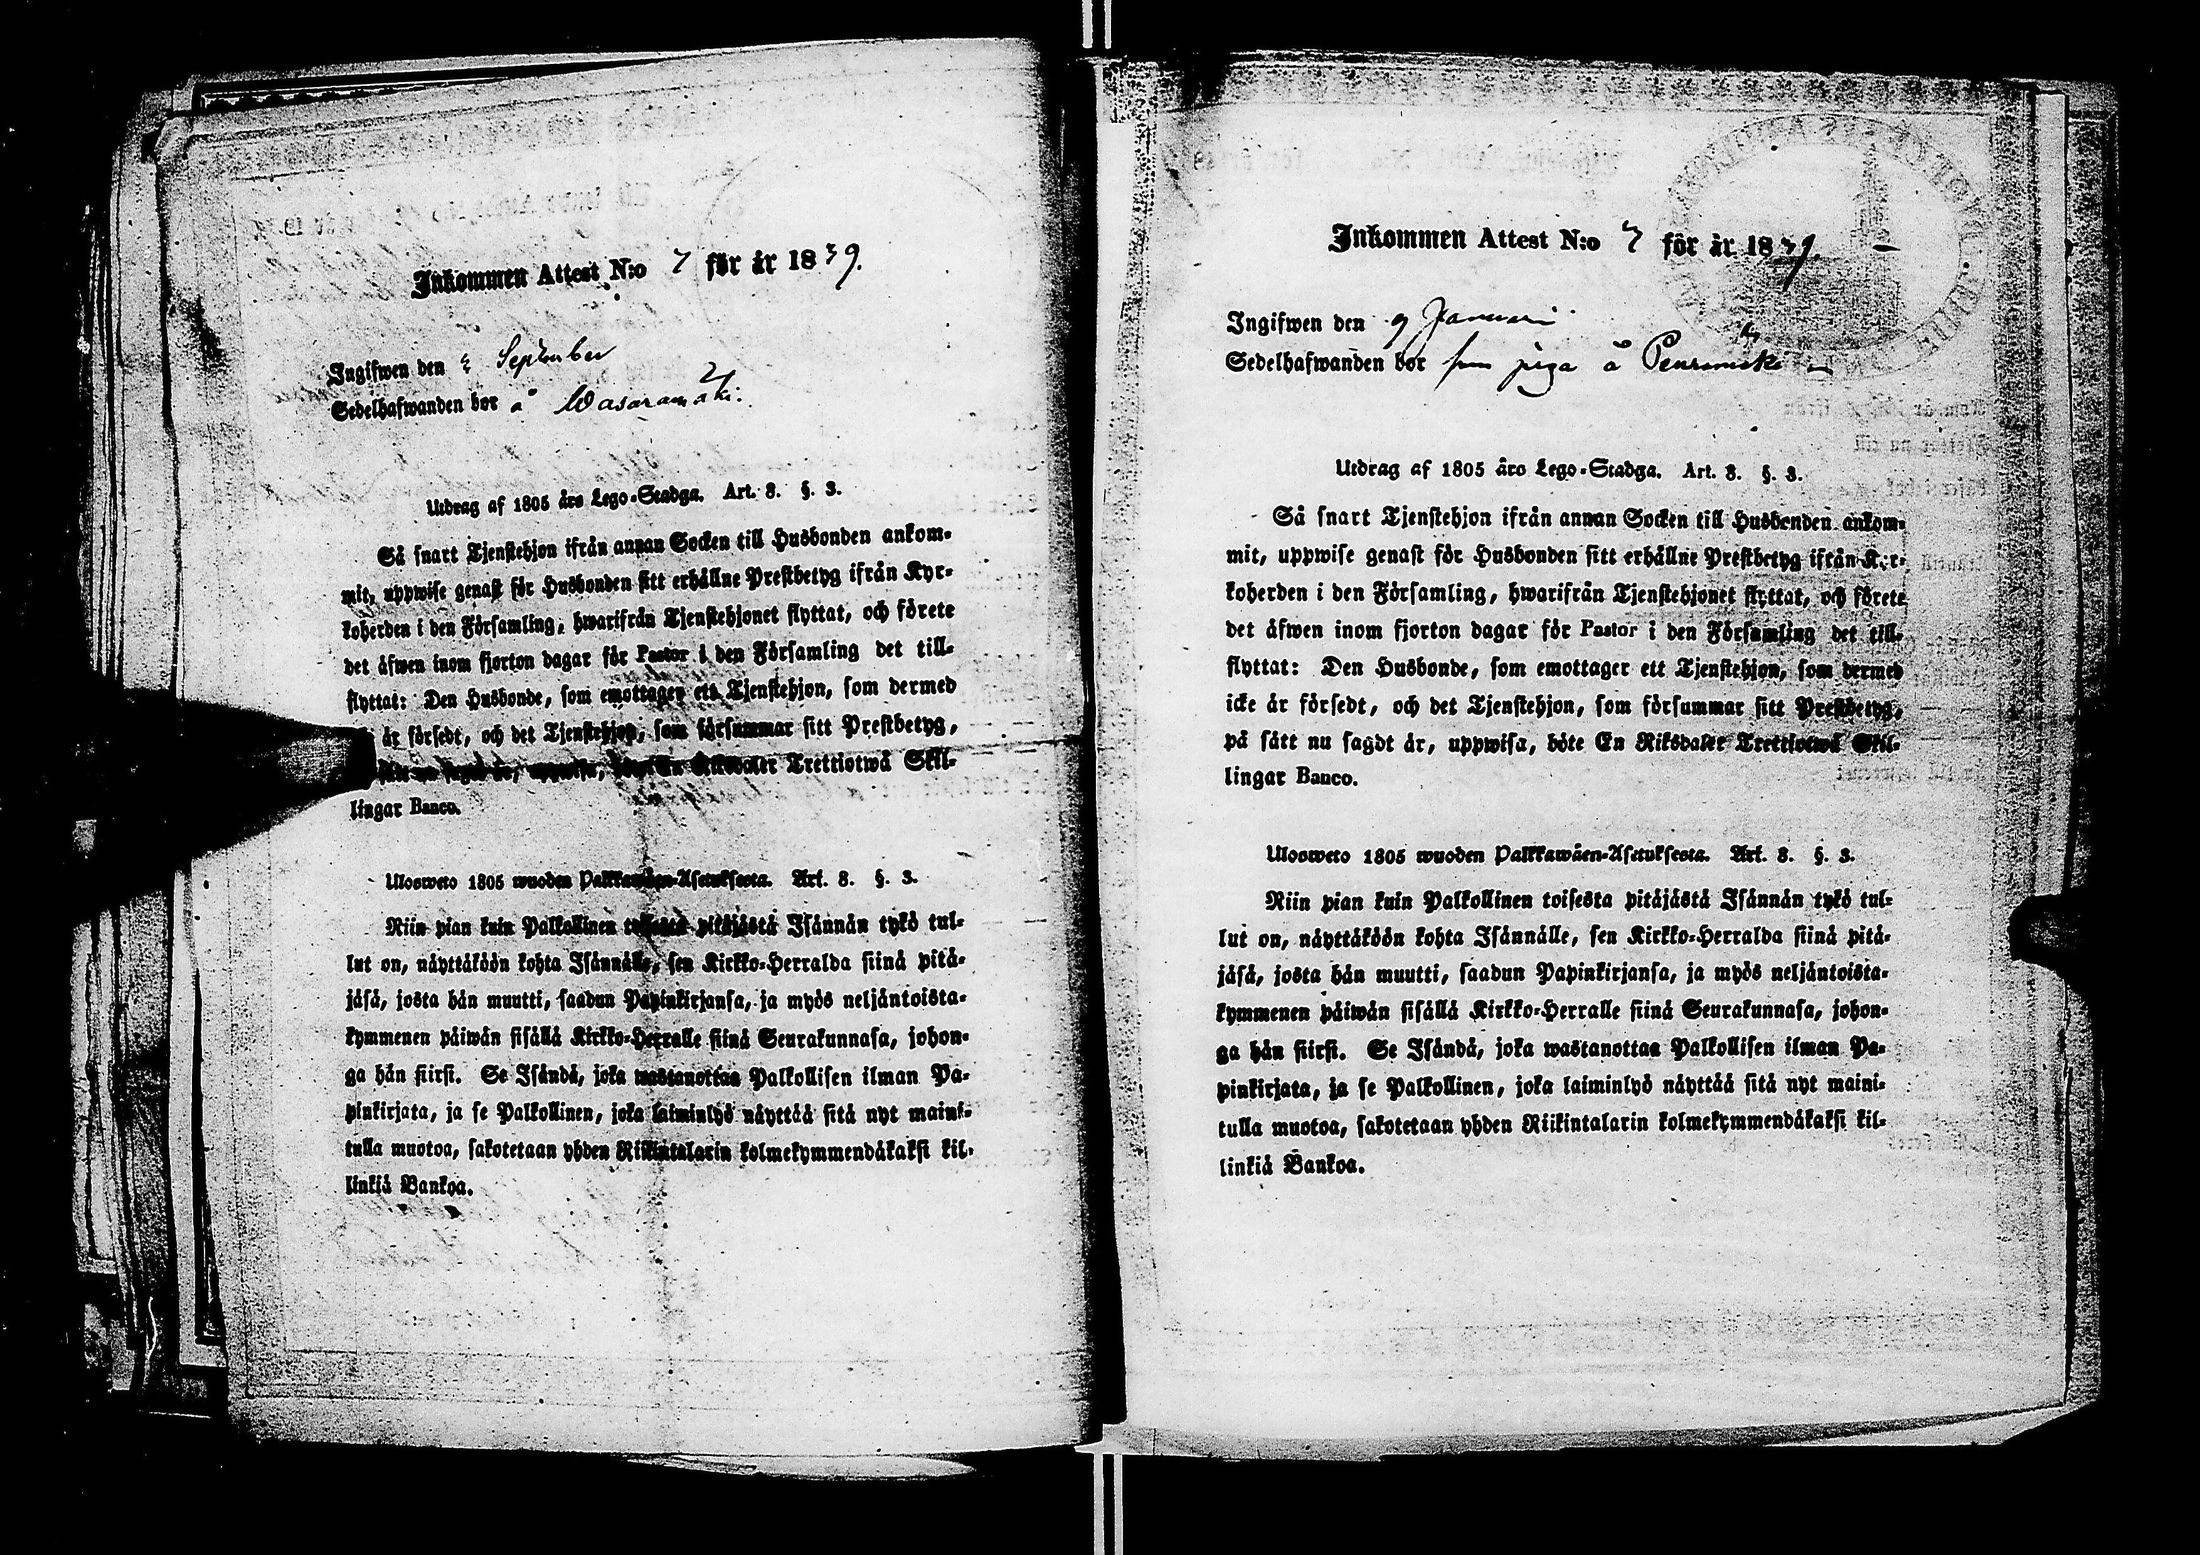 Inkommen Attest N:o 7 för år 1839.
Ingifwen den September
Sedelhafwanden bor å Wasaramäki.
Utdrag af 1805 års Lego-Stadga. Art. 8. §. 3.
Så snart Tjenstehjon ifrån annan Socken till Husbonden ankom-
mit, uppwise genast för Husbonden sitt erhållne Prestbetyg ifrån Kyr-
koherden i den Församling, hwarifrån Tjenstehjonet flyttat, och förete
det äfwen inom fjorton dagar för Pastor i den Församling det till-
flyttat: Den Husbonde, som emottager ett Tjenstehjon, som dermed
är försedt, och det Tjenstehjon, som försummar sitt Prestbetyg,
nu sagdt är, uppwisa, böte En Riksdaler Trettiotwå Skil-
lingar Banco.
Ulosweto 1805 wuoden Palkkawäen-Asetuksesta. Art. 8. §. 3.
Niin pian kuin Palkollinen toisesta pitäjästä Isännän tykö tul-
lut on, näyttäköön kohta Isännälle, sen Kirkko-Herralda siinä pitä-
jäsä, josta hän muutti, saadun Papinkirjansa, ja myös neljäntoista-
kymmenen päiwän sisällä Kirkko-Herralle siinä Seurakunnasa, johon-
ga hän siirsi. Se Isändä, joka wastanottaa Palkollisen ilman Pa-
pinkirjata, ja se Palkollinen, joka laiminlyö näyttää sitä nyt maini-
tulla muotoa, sakotetaan yhden Riikintalarin kolmekymmendäkaksi kil-
linkiä Bankoa.
Inkommen Attest N:o 7 för år 1839.
Ingifwen den 9 Januari
Sedelhafwanden bor som piga å
Utdrag af 1805 års Lego-Stadga. Art. 8. §. 3.
Så snart Tjenstehjon ifrån annan Socken till Husbonden ankom-
mit, uppwise genast för Husbonden sitt erhållne Prestbetyg ifrån Kyr-
koherden i den Församling, hwarifrån Tjenstehjonet flyttat, och förete
det äfwen inom fjorton dagar för Pastor i den Församling det till-
flyttat: Den Husbonde, som emottager ett Tjenstehjon, som dermed
icke är försedt, och det Tjenstehjon, som försummar sitt Prestbetyg,
på sätt nu sagdt är, uppwisa, böte En Riksdaler Trettiotwå Skil-
lingar Banco.
Ulosweto 1805 wuoden Palkkawäen-Asetuksesta. Art. 8. §. 3.
Niin pian kuin Palkollinen toisesta pitäjästä Isännän tykö tul-
lut on, näyttäköön kohta Isännälle, sen Kirkko-Herralda siinä pitä-
jäsä, josta hän muutti, saadun Papinkirjansa, ja myös neljäntoista-
kymmenen päiwän sisällä Kirkko-Herralle siinä Seurakunnasa, johon-
ga hän siirsi. Se Isändä, joka wastanottaa Palkollisen ilman Pa-
pinkirjata, ja se Palkollinen, joka laiminlyö näyttää sitä nyt maini-
tulla muotoa, sakotetaan yhden Riikintalarin kolmekymmendäkaksi kil-
linkiä Bankoa.